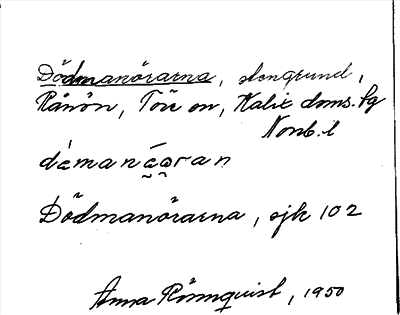 Dödmanörarna, stengrund,
Rånön, Töre sn, Kalix doms. fg
Norrb. l
démanǝ́ɷran
Dödmanörarna, sjk 102
Anna Rönnquist, 1950